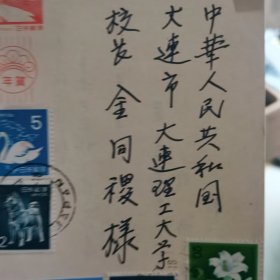 中華人民共和国
大連市 大連理工大学
校长 金同稷様
年賀
5